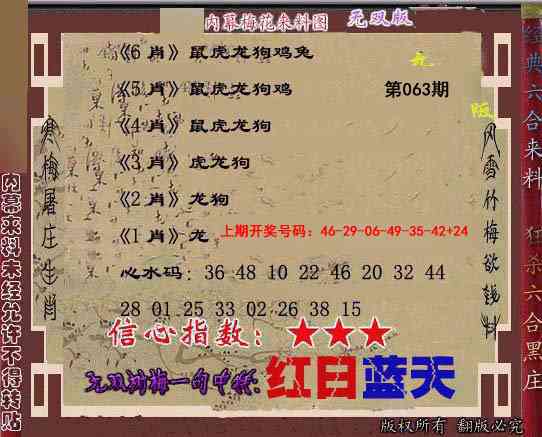 内幕梅花来料图 无双版
《6肖》鼠虎龙狗鸡兔
无
《5肖》鼠虎龙狗鸡 第063期
版
《4肖》鼠虎龙狗
《3肖》虎龙狗
《2肖》龙狗
《1肖》龙 上期开奖号码：46-29-06-49-35-42+24
心水码：36 48 10 22 46 20 32 44
28 01 25 33 02 26 38 15
信心指数：★★★
无双鸿梅一句中特：红日蓝天
寒梅屠庄生肖
风雪竹梅欲钱料
内幕来料未经允许不得转贴
经典六合来料
狂杀六合黑庄
版权所有 翻版必究